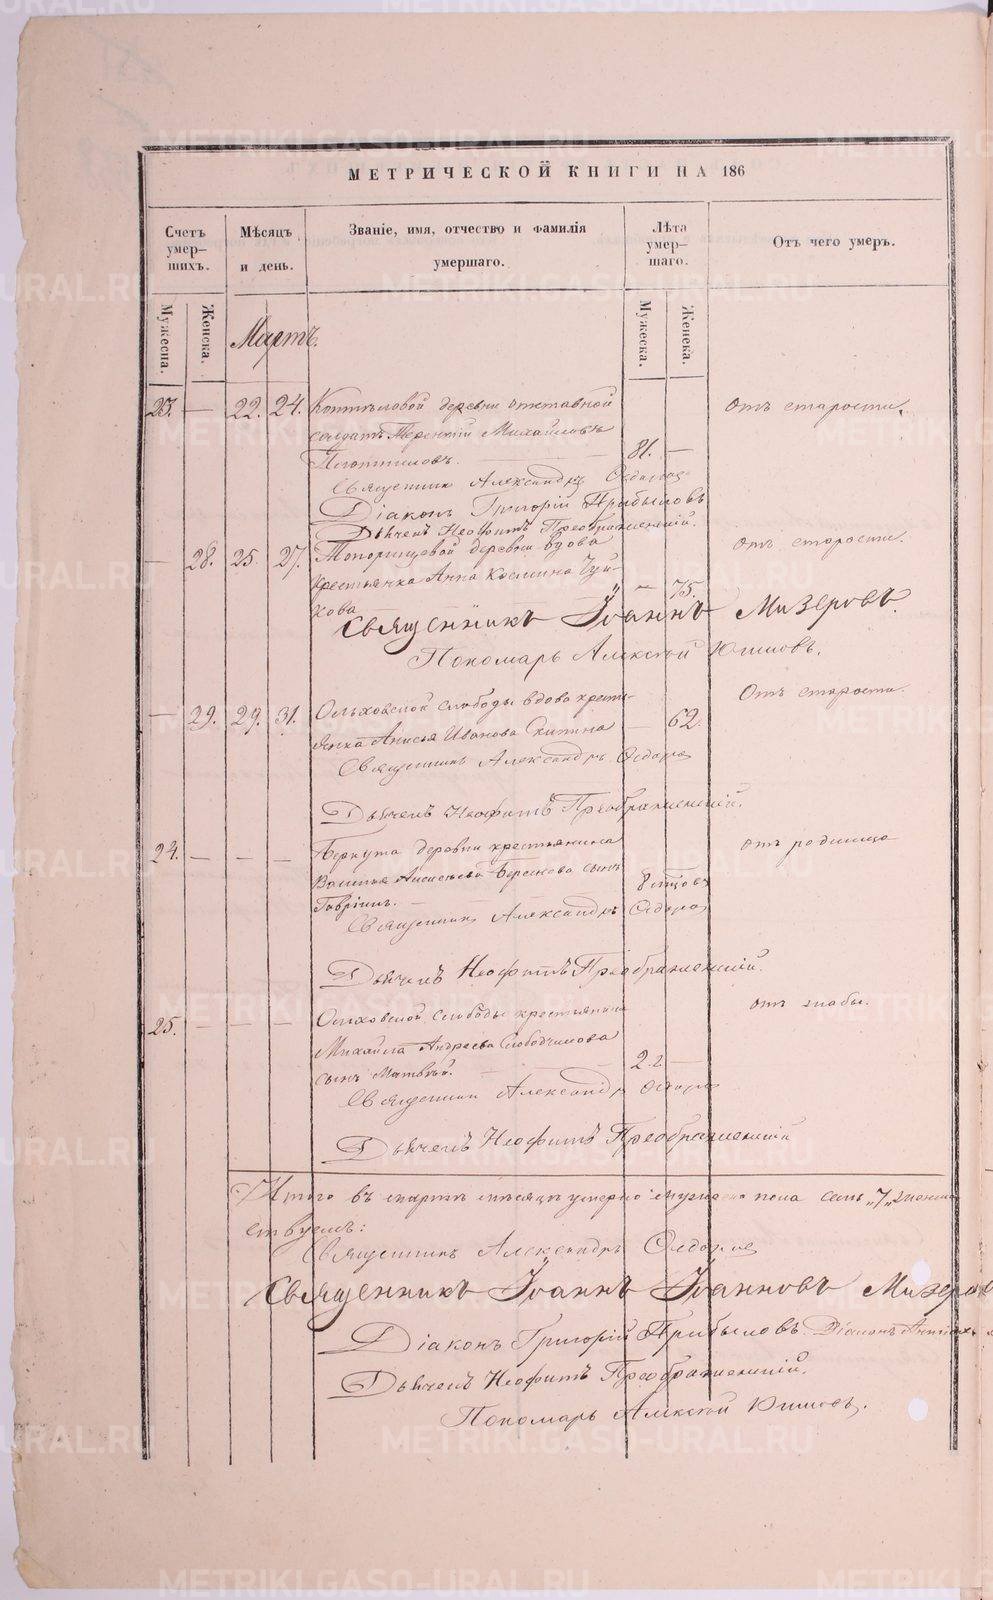 МЕТРИЧЕСКОЙ КНИГИ НА 186
Счетъ умер- шихъ.
Мѣсяцъ и день.
Званіе, имя, отчество и фамилія умершаго.
Лѣта умер- шаго.
Отъ чего умеръ.
Мужеска.
Женска.
Мартъ.
Мужеска.
Женска.
23. — 22. 24. деревни отставной
отъ старости.
солдатъ Терентій Михайловъ
81. —
Священникъ Александръ
Діаконъ Григорій Прибыловъ
Дьячекъ Неофитъ Преображенскій.
— 28. 25. 27. Топорищевой деревни вдова
отъ старости.
крестьянка Анна Космина Чуй-
— 75.
кова
Священникъ Іоаннъ Мизеровъ.
Пономарь Алексѣй
— 29. 29. 31. Ольховской слободы вдова кресть-
Отъ старости.
янка Анисья Иванова — 62.
Священникъ Александръ
Дьячекъ Неофитъ Преображенскій.
24. — — — деревни крестьянина
отъ родимца
сынъ
8 мѣсцов
Гавріилъ.
Священникъ Александръ
Дьячекъ Неофитъ Преображенскій.
25. — — — Ольховской слободы крестьянина
отъ
Михайла Андреева Слободчикова
сынъ Матвѣй. 2 г. —
Священникъ Александръ
Дьячекъ Неофитъ Преображенскій
Итого въ мартѣ мѣсяцѣ умерло мужеска пола семь „7„
Священникъ Александръ
Священникъ Іоаннъ Іоанновъ Мизеровъ
Діаконъ Григорій Прибыловъ. Діаконъ
Дьячекъ Неофитъ Преображенскій.
Пономарь Алексѣй
METRIKI.GASO-URAL.RU